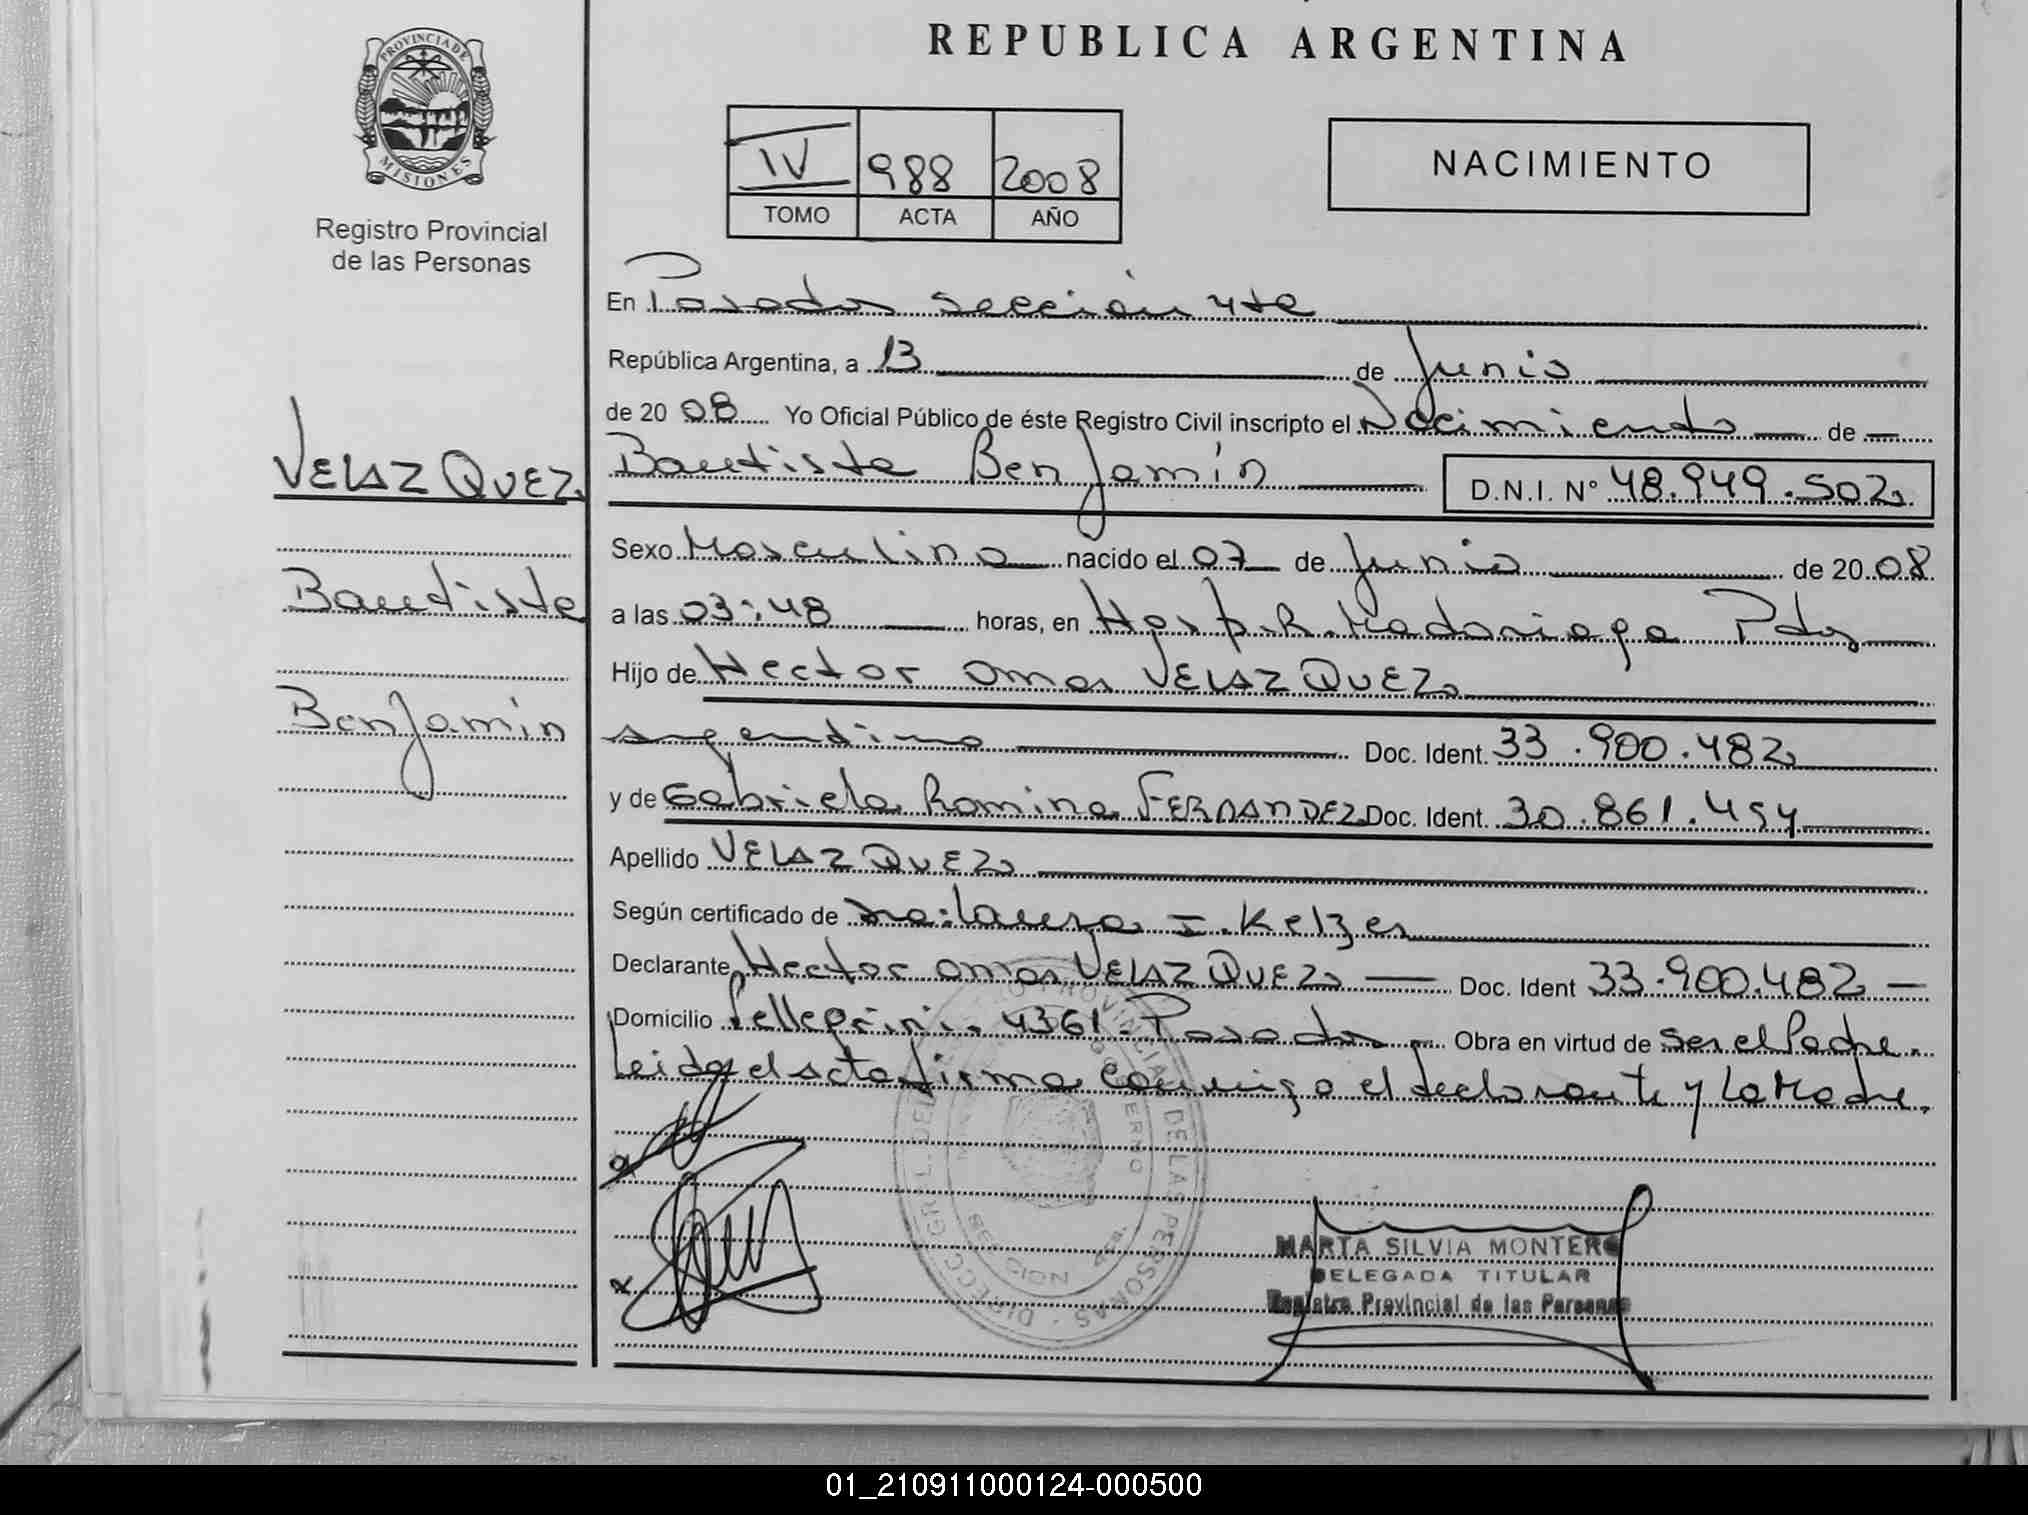 REPUBLICA ARGENTINA
PROVINCIA DE
MISIONES
Registro Provincial
de las Personas
IV 988 2008
TOMO ACTA AÑO
NACIMIENTO
VELAZQUEZ
Bautista
Benjamín
En Posadas sección 4ta
República Argentina, a 13 de Junio
de 20 08 Yo Oficial Público de éste Registro Civil inscripto el Nacimiento de
Bautista Benjamín D.N.I. N° 48.949.502
Sexo Masculino nacido el 07 de Junio de 20 08
a las 03:48 horas, en Hosp. R. Madariaga Pdas
Hijo de Hector Omar VELAZQUEZ
argentino Doc. Ident. 33.900.482
y de Gabriela Romina FERNANDEZ Doc. Ident. 30.861.454
Apellido VELAZQUEZ
Según certificado de Dra: Laura I. Kelzer
Declarante Hector Omar VELAZQUEZ Doc. Ident 33.900.482
Domicilio Pellegrini 4361 - Posadas Obra en virtud de ser el Padre.
Leida el acta firma conmigo el declarante y la Madre.
DIRECC. GRAL. DEL REGISTRO PROVINCIAL DE LAS PERSONAS
MARTA SILVIA MONTERO
DELEGADA TITULAR
Registro Provincial de las Personas
01_210911000124-000500